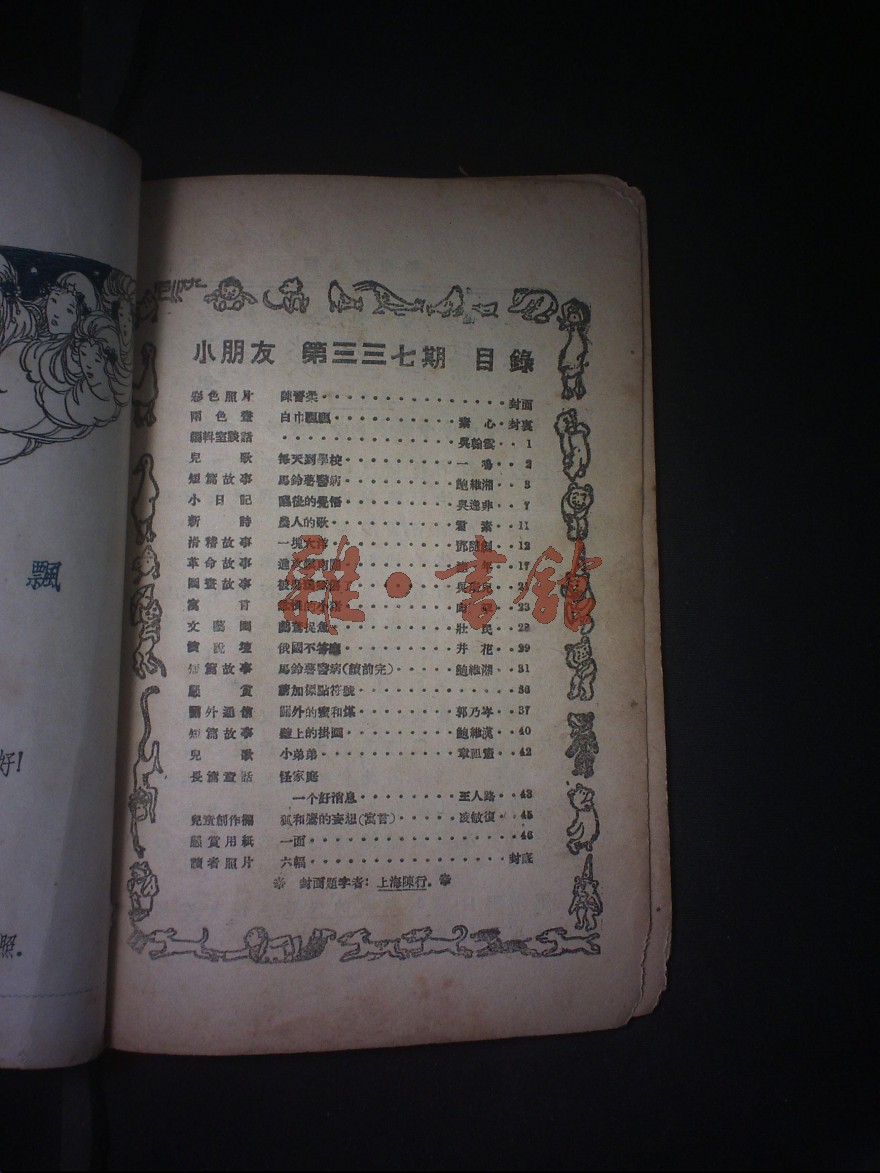 小朋友 第三三七期 目錄
彩色照片 陳🈳柔 封面
兩色畫 白巾飄飄 素心 封裏
編輯室談話 吳翰雲 1
兒歌 每天到學校 一鳴 2
短篇故事 馬鈴薯醫病 鮑維湘 3
小日記 醒後的覺悟 吳逸非 7
新詩 農人的歌 素 11
滑稽故事 一塊大 12
革命故事 年 17
圖畫故事 了
寓言 的小 23
文藝圖 捉魚 壯民 28
演說壇 俄國不答應 井花 29
短篇故事 馬鈴薯醫病(續前完) 鮑維湘 31
懸賞 請加標點符號 36
關外通信 關外的蜜和煤 郭乃岑 37
短篇故事 牆上的掛圖 鮑維漢 40
兒歌 小弟弟 章祖 42
長篇童話 怪家庭
一个好消息 王人路 43
兒童創作欄 狐和鷺的妄想(寓言) 凌敏復 45
懸賞用紙 一面 46
讀者照片 六幅 封底
封面題字者:上海陳行.
雜·書館
飄
好!
照.